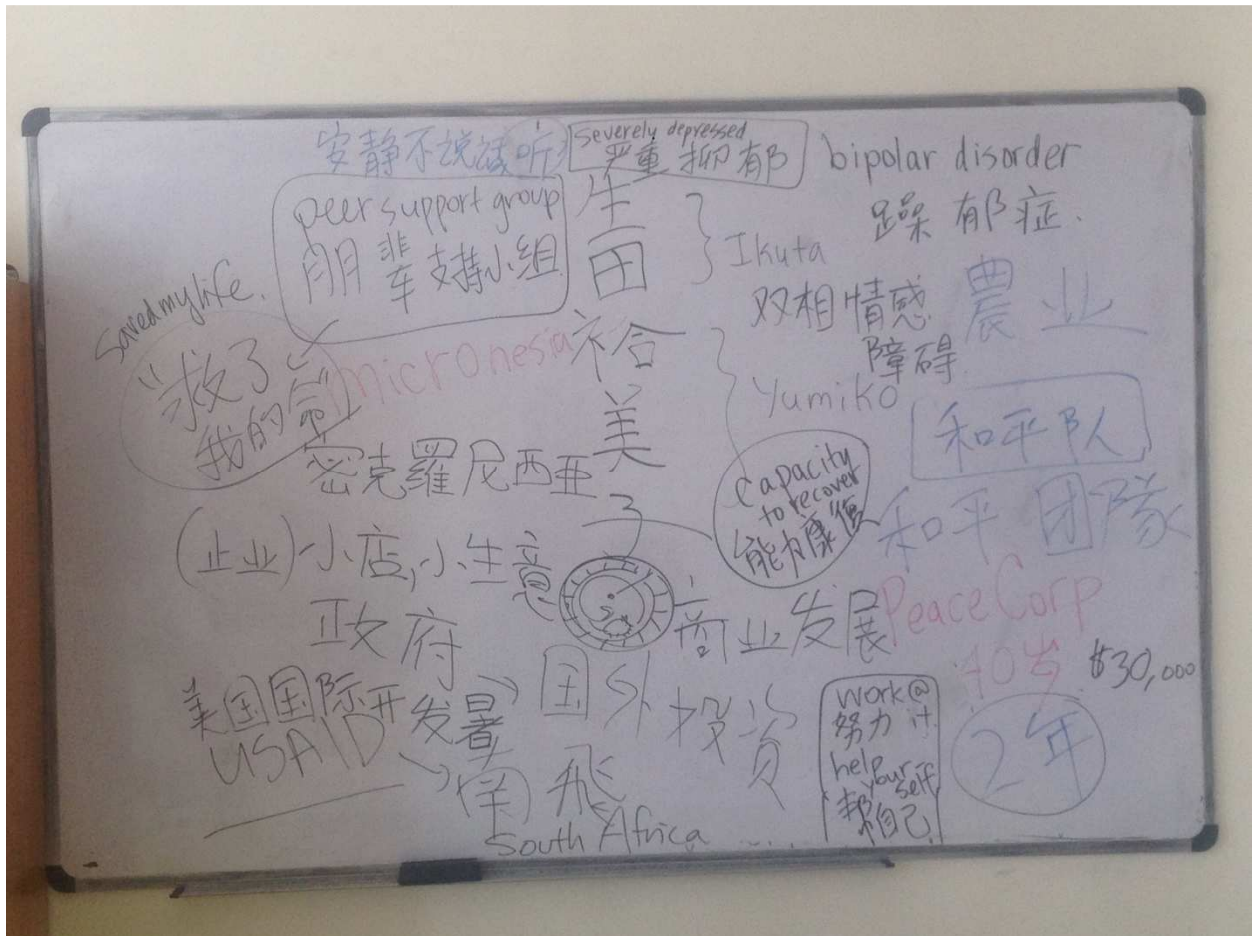 安静不说话听
severely depressed
严重抑郁
bipolar disorder
躁郁症
peer support group
朋辈支持小组
生田
Ikuta
双相情感
障碍
農业
saved my life.
"救了
我的命"
micronesia
裕美子
Yumiko
密克羅尼西亚
capacity
to recover
能力康復
和平队
和平团隊
(止业)小店,小生意
政府
商业发展
Peace Corp
40岁
$30,000
美国国际开发署
USAID
国外投资
南飛
South Africa ....
work@
努力 it
help
your self
帮自己
2年